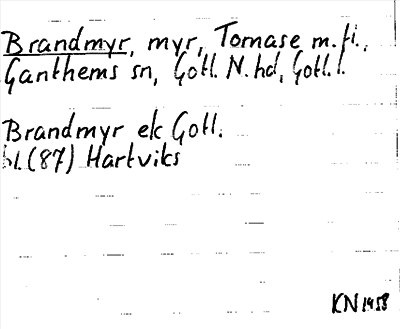 Brandmyr, myr, Tomase m.fl.,
Ganthems sn, Gotl. N. hd, Gotl. l.
Brandmyr ek Gotl.
bl. (87) Hartviks
KN 1958